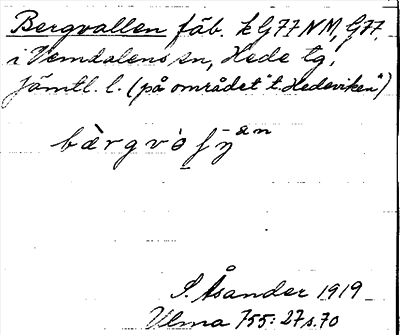 Bergvallen fäb. k G77 NM, G77.
i Vemdalens sn, Hede tg,
Jämtl. l. (på området "t. Hedeviken")
S. Åsander 1919
Ulma 755: 27 s. 70